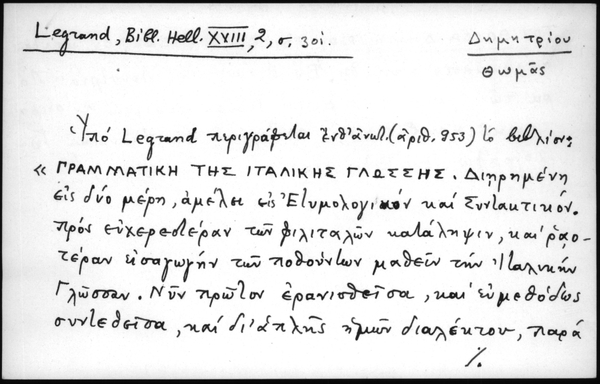 Legrand, Bibl. Hell. XVIII, 2, σ. 301.
Δημητρίου
Θωμᾶς
Ὑπό Legrand περιγράφεται ἐνθ'ἀνωτ. (ἀριθ. 953) τό βιβλίον:
« ΓΡΑΜΜΑΤΙΚΗ ΤΗΣ ΙΤΑΛΙΚΗΣ ΓΛΩΣΣΗΣ. Διῃρημένη
εἰς δύο μέρη, ἀμέλει εἰς Ἐτυμολογικόν καί Συντακτικόν.
πρός εὐχερεστέραν τῶν φιλιταλῶν κατάληψιν, καί ῥᾳο-
τέραν εἰσαγωγήν τῶν ποθούντων μαθεῖν τήν Ἰταλικήν
Γλῶσσαν. Νῦν πρῶτον ἐρανισθεῖσα, καί εὐμεθόδως
συντεθεῖσα, καί δι'ἁπλῆς ἡμῶν διαλέκτου, παρά
٪.